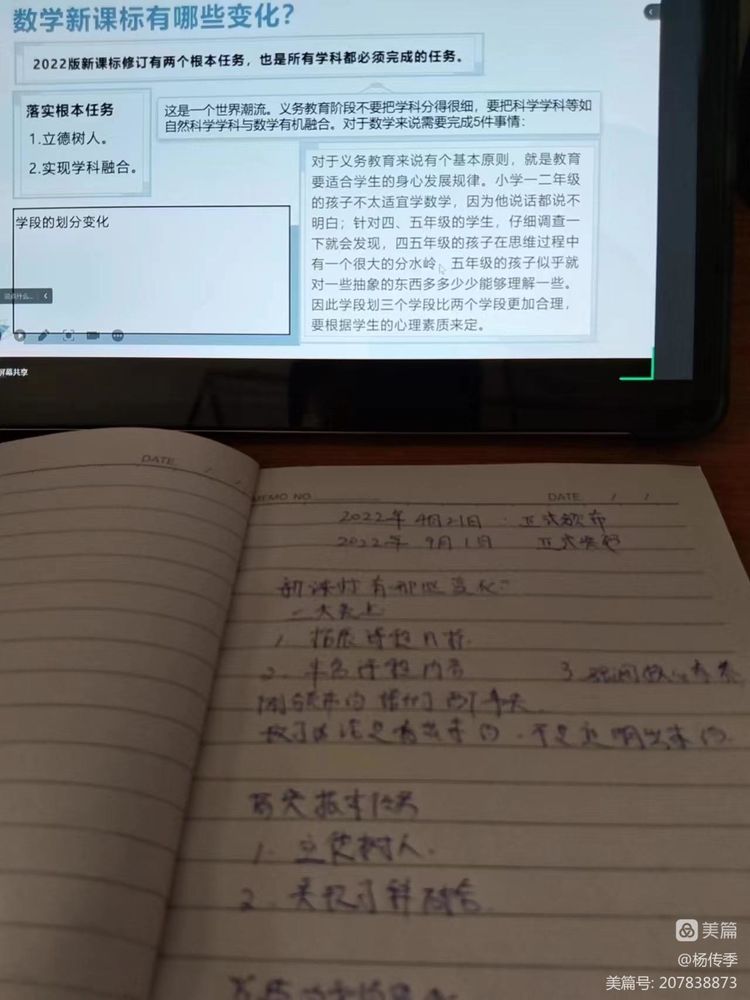 数学新课标有哪些变化？
2022版新课标修订有两个根本任务，也是所有学科都必须完成的任务。
落实根本任务
1.立德树人。
2.实现学科融合。
这是一个世界潮流。义务教育阶段不要把学科分得很细，要把科学学科等如
自然科学学科与数学有机融合。对于数学来说需要完成5件事情：
学段的划分变化
对于义务教育来说有个基本原则，就是教育
要适合学生的身心发展规律。小学一二年级
的孩子不太适宜学数学，因为他说话都说不
明白；针对四、五年级的学生，仔细调查一
下就会发现，四五年级的孩子在思维过程中
有一个很大的分水岭，五年级的孩子似乎就
对一些抽象的东西多多少少能够理解一些。
因此学段划三个学段比两个学段更加合理，
要根据学生的心理素质来定。
说点什么...
屏幕共享
DATE / /
MEMO NO.
DATE / /
2022年4月21日 正式颁布
2022年9月1日 正式实施
新课标有哪些变化？
1. 拓展课程目标
2. 课程内容 3
落实根本任务
1. 立德树人.
2. 实现学科融合.
美篇
@杨传季
美篇号: 207838873